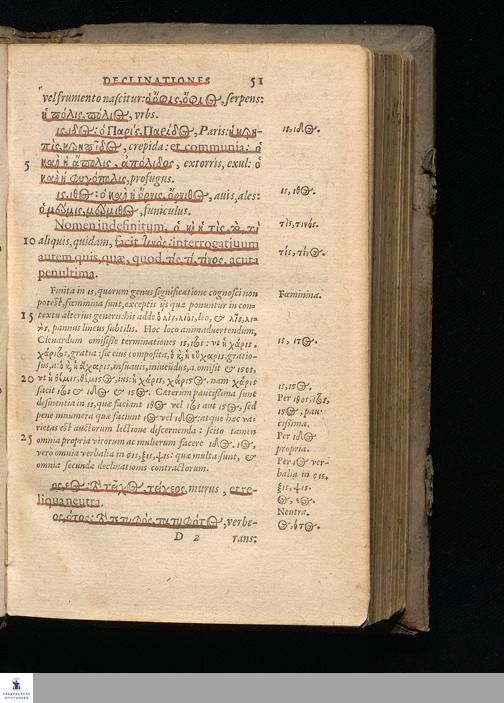 DECLINATIONES 51
vel frumento nascitur: ὁ ὄφις, ὄφιος, serpens:
ἡ πόλις, πόλιος, vrbs.
ις, ιδος: ὁ Παρίς, Παρίδος, Paris: ἡ κρη-
πὶς, κρηπῖδος, crepida: et communia: ὁ
5 καὶ ἡ ἄπολις, ἀπόλιδος, extorris, exul: ὁ
καὶ ἡ φυγόπολις, profugus.
ις, ιθος: ὁ καὶ ἡ ὄρνις, ὄρνιθος, auis, ales:
ὁ μέρμις, μέρμιθος, funiculus.
Nomen indefinitum, ὁ καὶ ἡ τὶς, καὶ τὶ
10 aliquis, quidam, facit τινός: interrogatiuum
autem quis, quæ, quod, τίς, τί, τίνος, acuta
penultima.
Finita in ις, quorum genus significatione cognosci non
potest, fœminina sunt, exceptis ijs quæ ponuntur in con-
15 textu alterius generis: his adde ὁ λῖς, λιὸς, leo, &
pannus lineus subtilis. Hoc loco animaduertendum,
Clenardum omisisse terminationes ις, ιτος: vt ἡ χάρις,
χάριτος, gratia: sic eius composita, ὁ καὶ ἡ εὔχαρις, gratio-
sus, ὁ καὶ ἡ ἄχαρις, insuauis, iniucūdus, a. omisit & ιςος,
20 vt ἡ θέμις, θέμιςος, ius: ἡ χάρις, χάριςος. nam χάρις
facit ιτος & ιδος & ιςος. Cæterum paucissima sunt
desinentia in ις, quæ faciant ιθος vel ιτος aut ιςος, sed
pene innumera quæ faciunt ιος vel ιδος: atque hæc va-
rietas est auctorum lectione discernenda: scito tamen
25 omnia propria virorum ac mulierum facere ιδος. ιος,
vero omnia verbalia in σις, ξις, ψις: quæ multa sunt, &
omnia secundæ declinationis contractorum.
ος, εος: τὸ τεῖχος, τείχεος, murus, et re-
liqua neutra.
ος, ότος: ὁ τετυφὼς, τετυφότος, verbe-
D 2 rans:
ις, ιδος.
ις, ιθος.
τὶς, τινός.
τίς, τίνος.
Fœminina.
ις, ιτος.
ις, ιςος.
Per ιθος, ιτος,
ιςος, pau-
cissima.
Per ιδος
propria.
Per ιος ver-
balia in σις,
ξις, ψις.
ος, εος.
Neutra.
ος, ότος.